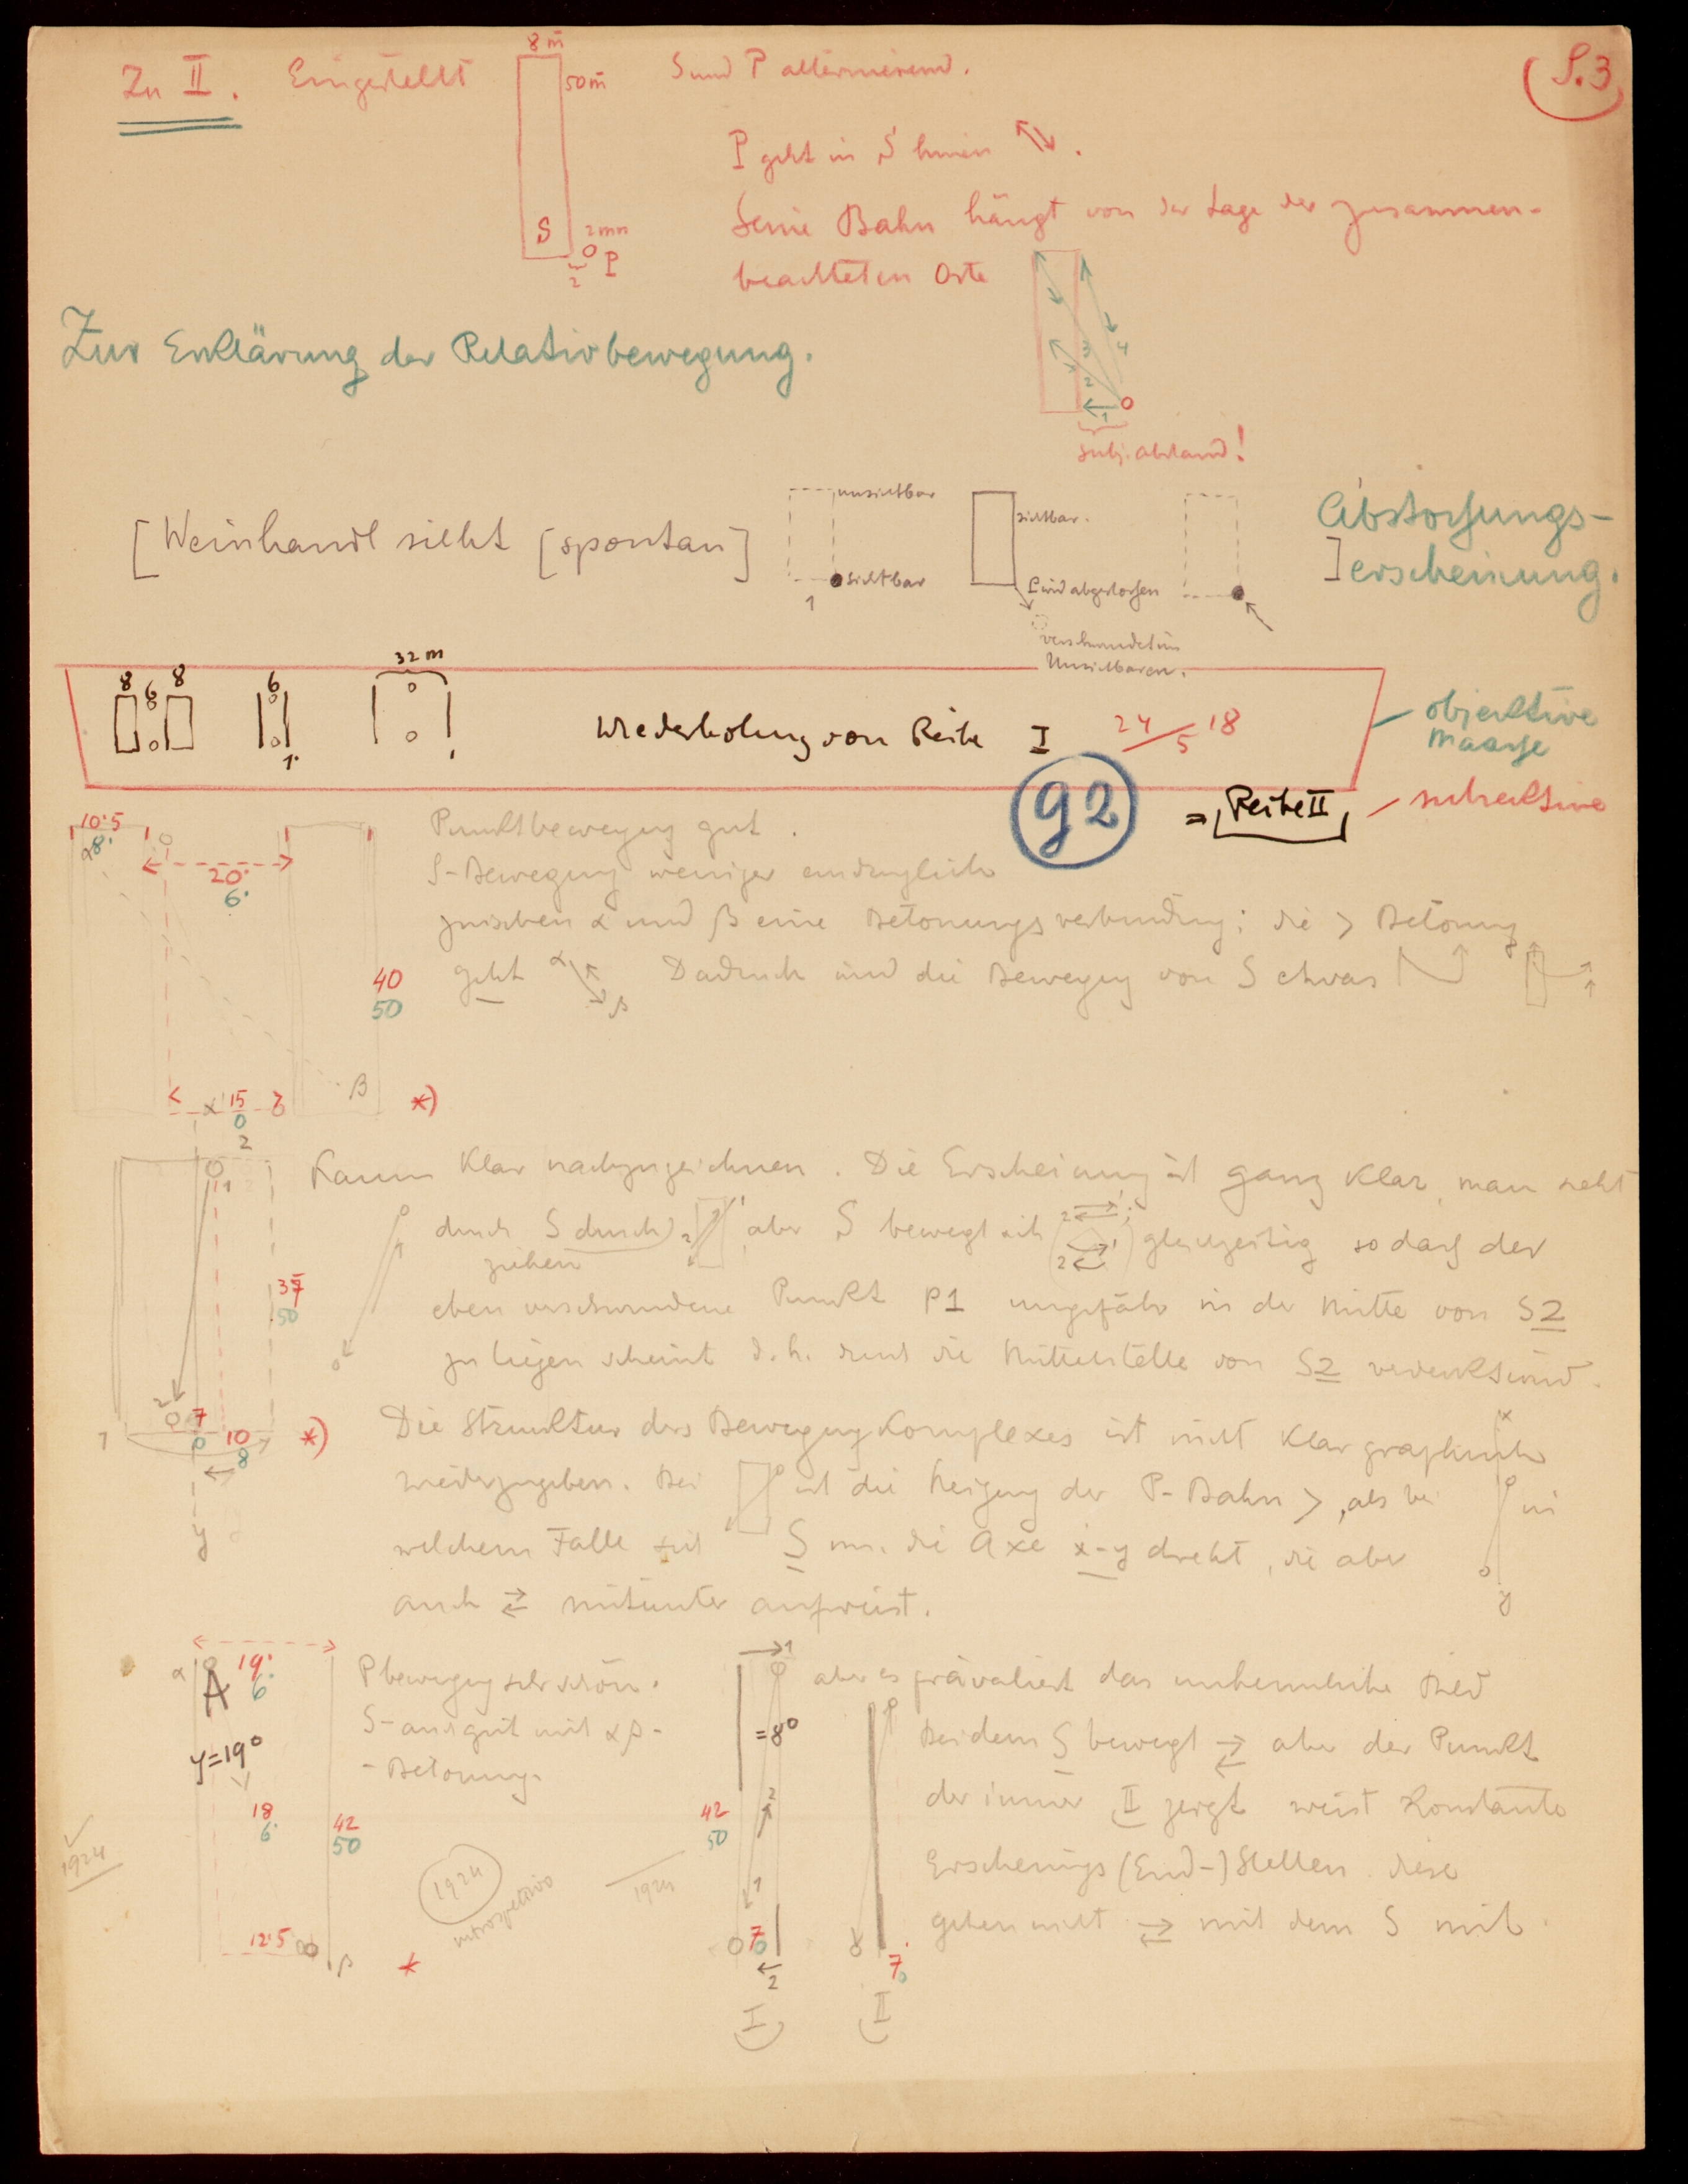 Zu II. Eingestellt
8 m̄
50 m̄
S
2 mm
P
2
S und P alternierend.
S.3
P geht in S hinein
Seine Bahn hängt von der Lage der zusammen-
beachteten Orte
1
2
3
4
subj. abstand!
Zur Erklärung der Relativbewegung.
[Weinhandl sieht [spontan]
unsichtbar
sichtbar
1
sichtbar.
P wird abgestossen
verschwindet im
Unsichtbaren.
Abstossungs-
] erscheinung.
8 6 8
6
1.
32 m
Wiederholung von Reihe I 24/5 18
objektive
Maasse
92
= Reihe II
subjektive
10·5
8·
20·
6·
40
50
15
0
β
*)
Punktbewegung gut.
S-Bewegung weniger eindringlich
zwischen α und β eine Betonungsverbindung; die > Betonung
geht α β Dadurch wird die Bewegung von S etwas
2
1
37
50
2
7
0
1
10
8
*)
y
Kaum klar nachzuzeichnen. Die Erscheinung ist ganz klar, man sieht
durch S durch) aber S bewegt sich gleichzeitig so dass der
ziehen
eben verschwundene Punkt P1 ungefähr in der Mitte von S2
zu liegen scheint d.h. durch die Mittelstelle von S2 verdeckt wird.
Die Struktur des Bewegungskomplexes ist nicht klar graphisch
wiederzugeben. Bei ist die Neigung der P-Bahn >, als bei in
welchem Falle sich S um die Axe x-y dreht, die aber
auch ⇄ mitunter aufweist.
x
y
α
A
19·
6
γ=19°
18
6·
42
50
12·5
β
*
P bewegung sehr schön.
S- auch gut mit αβ-
-Betonung.
1924
1924
introspektiv
1924
1
=8°
2
42
50
1
7
0
2
I
7
0
II
aber es prävaliert das unheimliche Bild
Bei dem S bewegt ⇄ aber der Punkt
der immer II zeigt weist konstante
Erscheinungs (End-) Stellen. diese
gehen nicht ⇄ mit dem S mit.